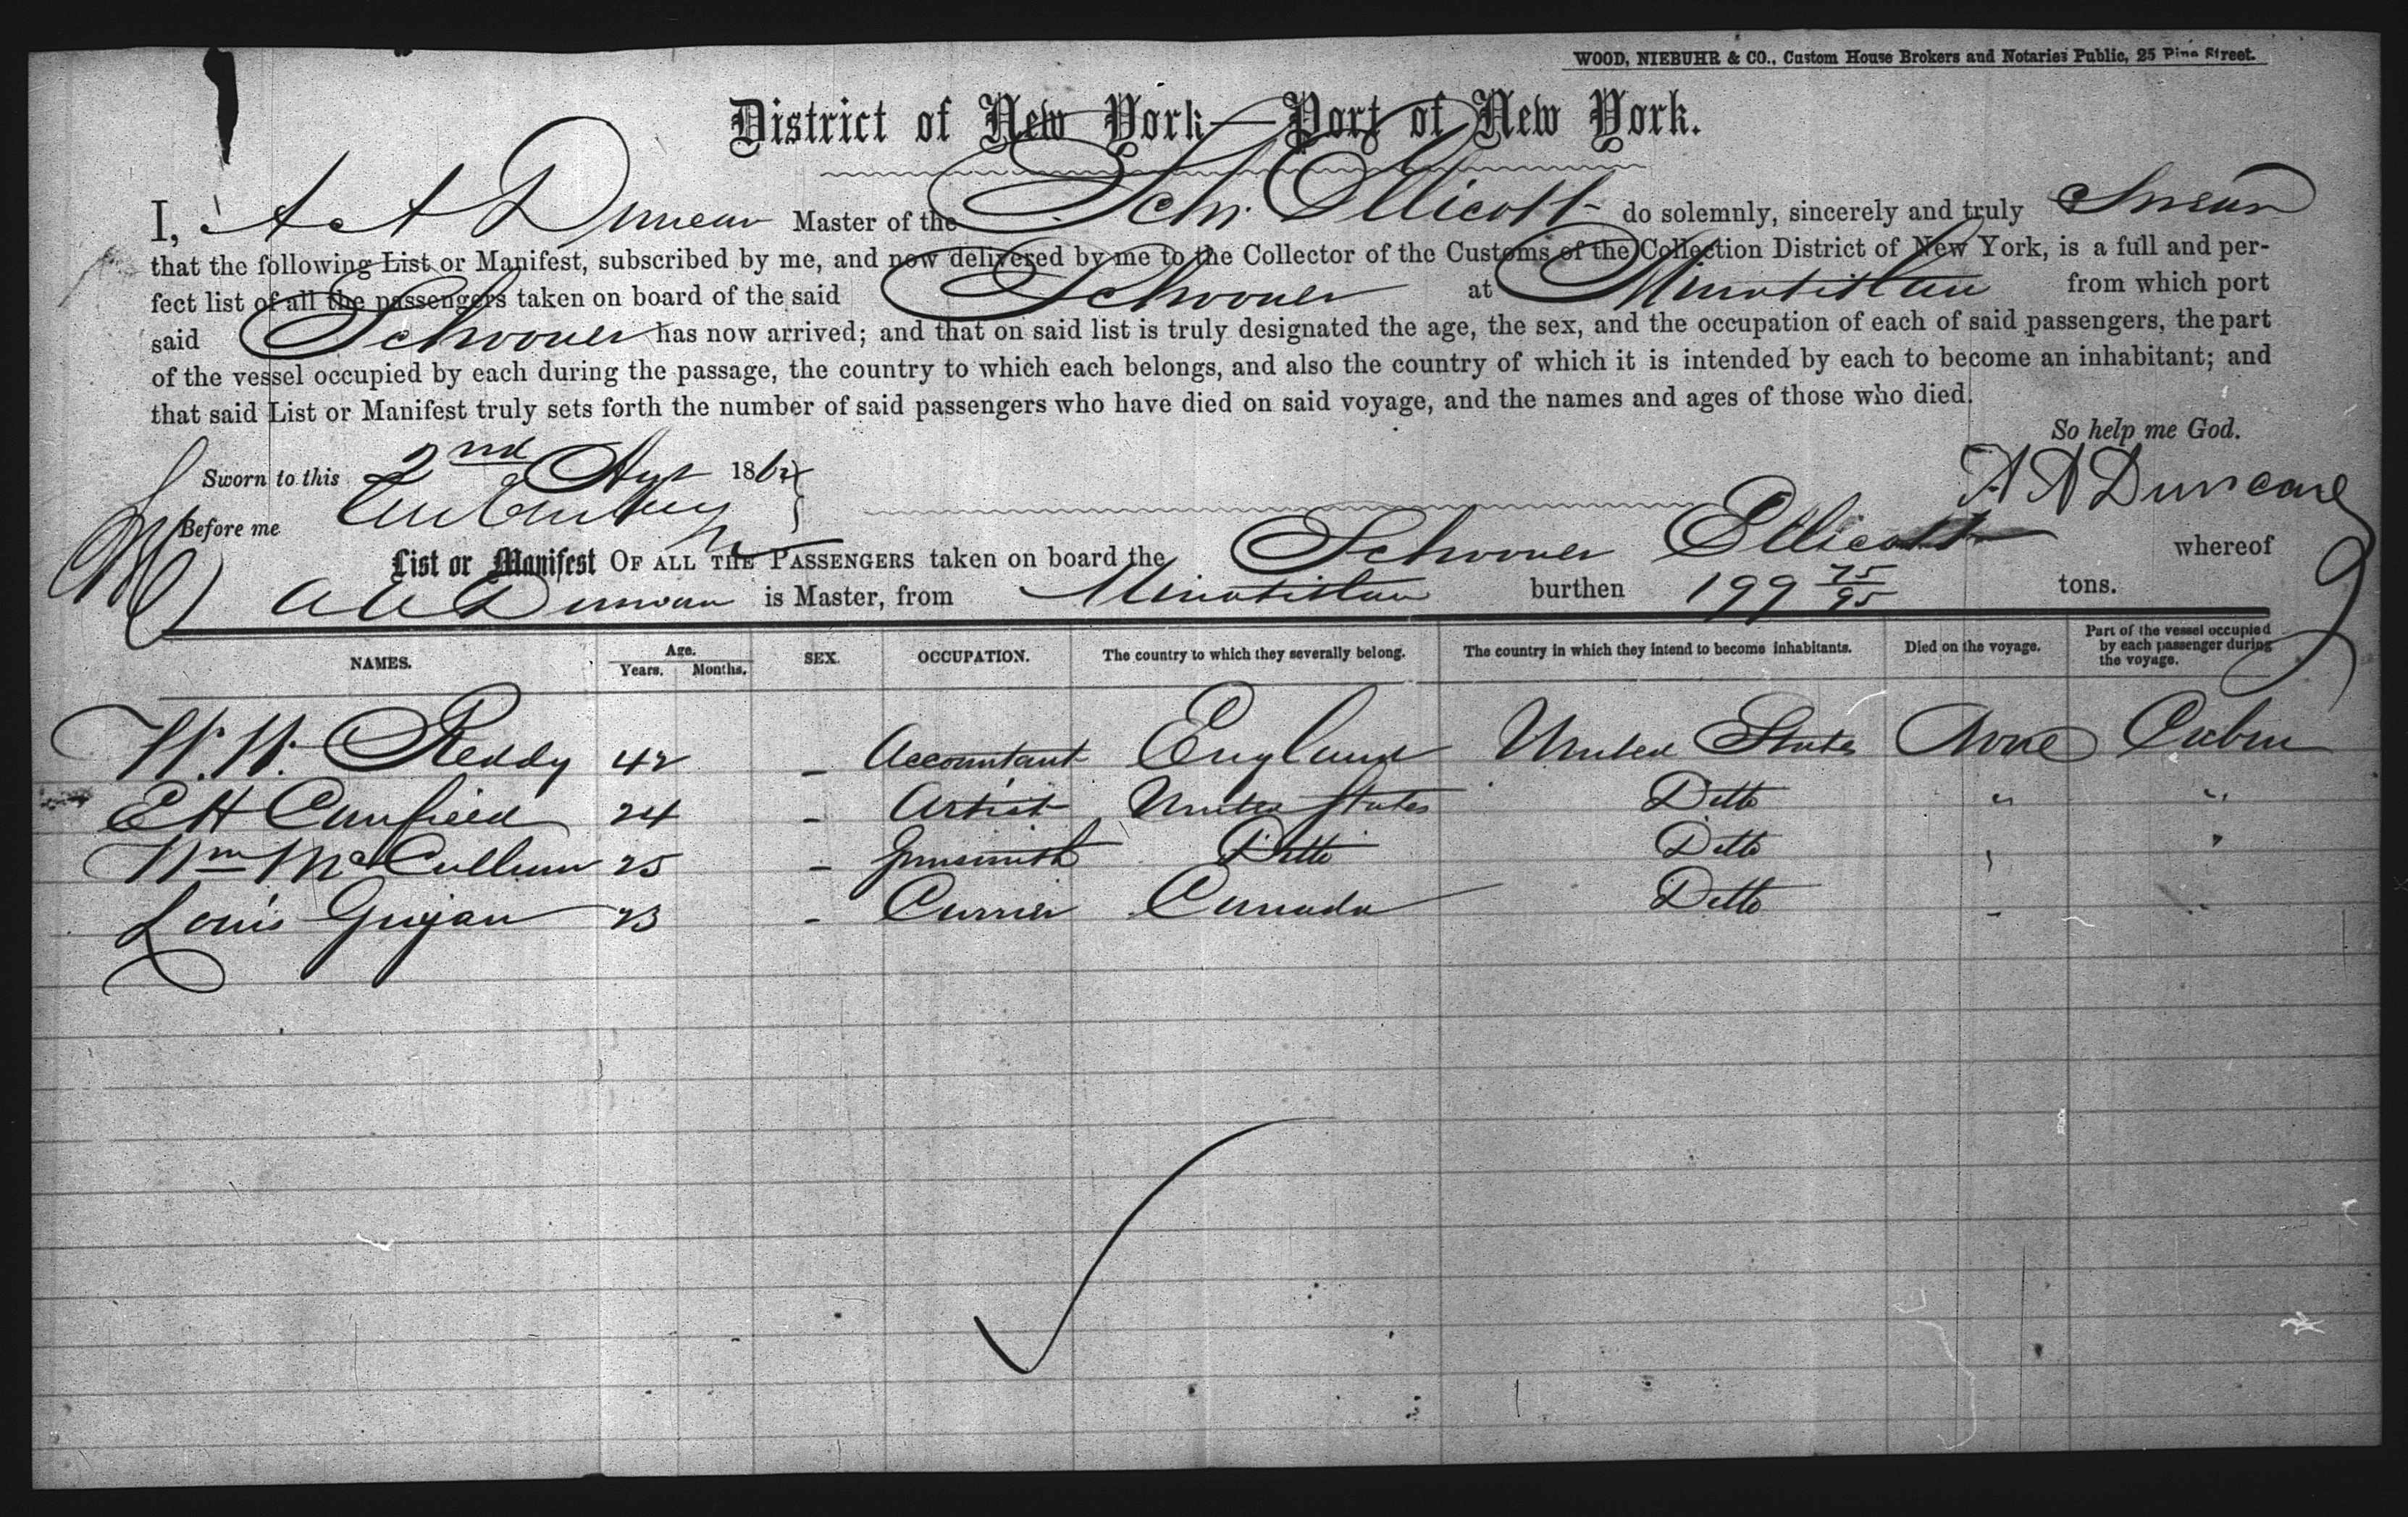 WOOD, NIEBUHR & CO., Custom House Brokers and Notaries Public, 25 Pine Street.
District of New York—Port of New York.
I, A A Duncan Master of the Schr. Ellicott do solemnly, sincerely and truly Swear
that the following List or Manifest, subscribed by me, and now delivered by me to the Collector of the Customs of the Collection District of New York, is a full and per-
fect list of all the passengers taken on board of the said Schooner at Minatitlan from which port
said Schooner has now arrived; and that on said list is truly designated the age, the sex, and the occupation of each of said passengers, the part
of the vessel occupied by each during the passage, the country to which each belongs, and also the country of which it is intended by each to become an inhabitant; and
that said List or Manifest truly sets forth the number of said passengers who have died on said voyage, and the names and ages of those who died.
So help me God.
Sworn to this 2nd 186
A A Duncan
Before me
List or Manifest OF ALL THE PASSENGERS taken on board the Schooner Ellicott whereof
A A Duncan is Master, from Minatitlan burthen 199 75/95 tons.
NAMES. Age. Years. Months. SEX. OCCUPATION. The country to which they severally belong. The country in which they intend to become inhabitants. Died on the voyage. Part of the vessel occupied by each passenger during the voyage.
W. H. Reddy 42 - Accountant England United States None Cabin
E H Canfield 24 - Artist United States Ditto " "
Wm McCullum 25 - Gunsmith Ditto Ditto " "
Louis 23 - Currier Canada Ditto " "